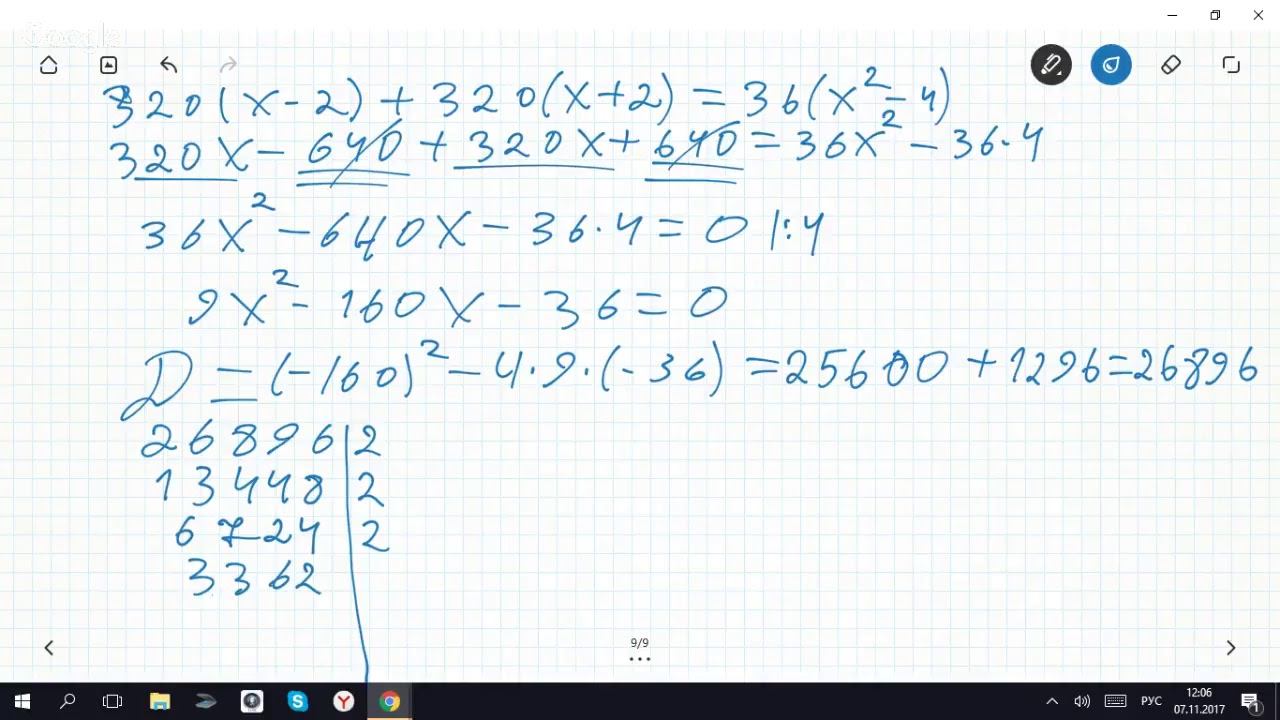 Google
320(x-2)+320(x+2)=36(x²-4)
320x-640+320x+640=36x²-36·4
36x²-640x-36·4=0 |:4
9x²-160x-36=0
D=(-160)²-4·9·(-36)=25600+1296=26896
26896|2
13448|2
6724|2
3362|
9/9
РУС
12:06
07.11.2017
1